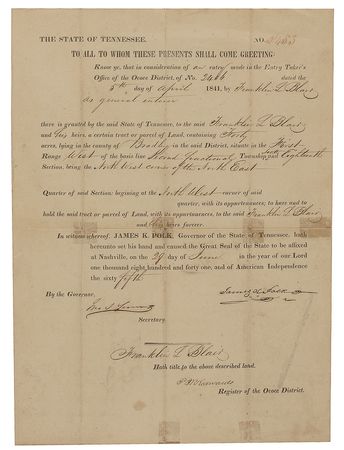 THE STATE OF TENNESSEE. NO. 2485
TO ALL TO WHOM THESE PRESENTS SHALL COME GREETING:
Know ye, that in consideration of an entry made in the Entry Taker's
Office of the Ocoee District, of No. 2466 dated the
5th day of April 1841, by Franklin L Blair
as general enterer
there is granted by the said State of Tennessee, to the said Franklin L Blair
and his heirs, a certain tract or parcel of Land, containing Forty
acres, lying in the county of Bradley in the said District, situate in the First
Range West of the basis line Second fractional Township South Eighteenth
Section: being the North West corner of the North East
Quarter of said Section: begining at the North West corner of said
quarter, with its appurtenances; to have and to
hold the said tract or parcel of Land, with its appurtenances, to the said Franklin L Blair
and his heirs forever.
In witness whereof, JAMES K. POLK, Governor of the State of Tennessee, hath
hereunto set his hand and caused the Great Seal of the State to be affixed
at Nashville, on the 29 day of June in the year of our Lord
one thousand eight hundred and forty one, and of American Independence
the sixty fifth
By the Governor, James K. Polk
Secretary.
Franklin L Blair
Hath title to the above described land.
Register of the Ocoee District.